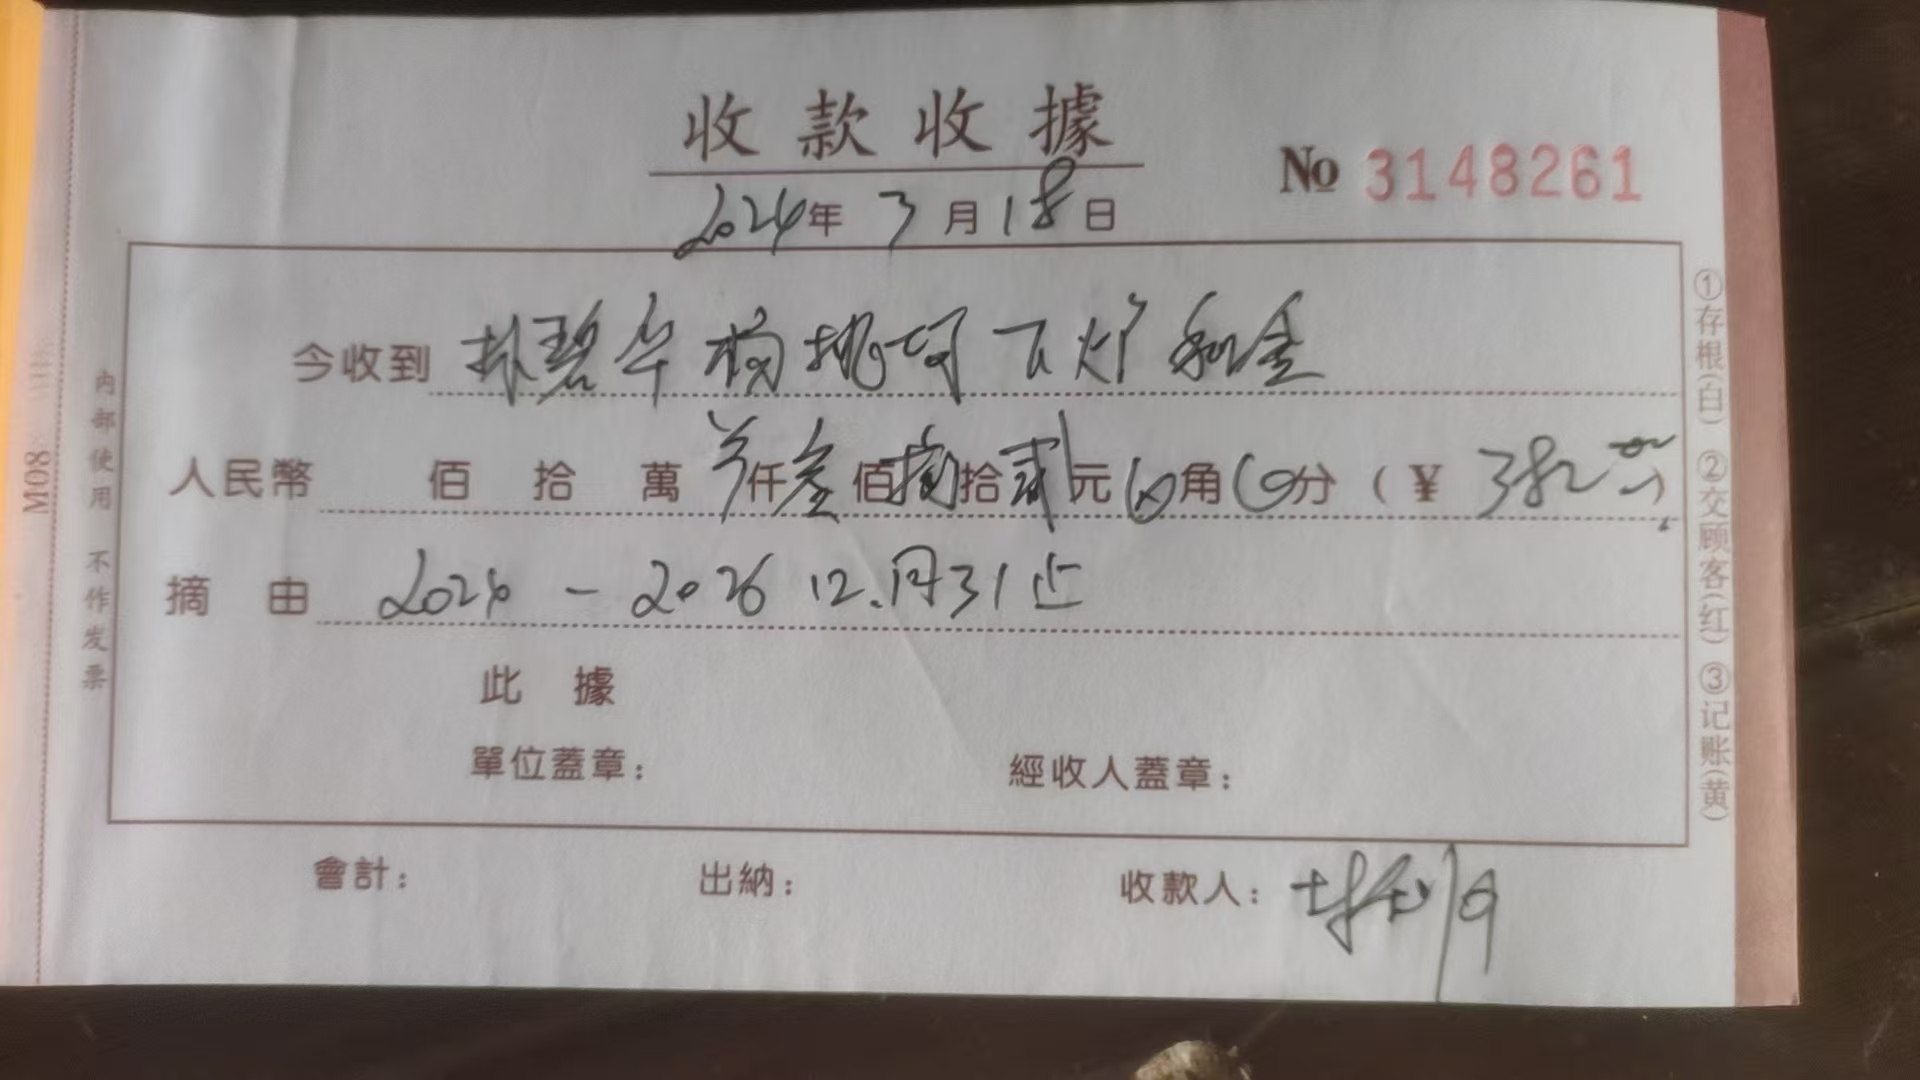 收款收據
No 3148261
2024年3月18日
今收到 林碧华杨桃坷下火炉租金
人民幣 佰 拾 萬 仟叁佰捌拾贰元0角0分(¥382
摘 由 2024 - 2026 12.月31止
此 據
單位蓋章: 經收人蓋章:
會計: 出納: 收款人:
M08
内部使用 不作发票
①存根(白) ②交顾客(红) ③记账(黄)